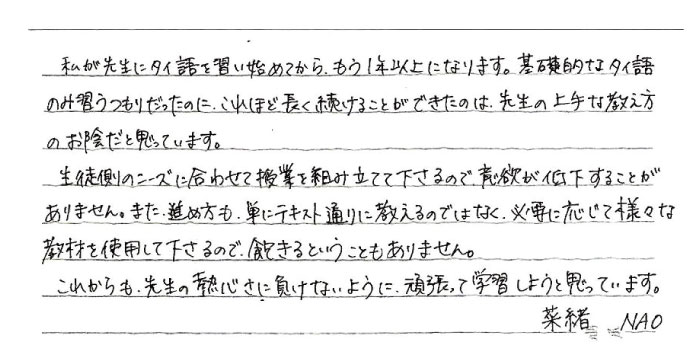 私が先生にタイ語を習い始めてから、もう1年以上になります。基礎的なタイ語
のみ習うつもりだったのに、これほど長く続けることができたのは、先生の上手な教え方
のお陰だと思っています。
生徒側のニーズに合わせて授業を組み立てて下さるので、意欲が低下することが
ありません。また、進め方も、単にテキスト通りに教えるのではなく、必要に応じて様々な
教材を使用して下さるので、飽きるということもありません。
これからも、先生の熱心さに負けないように、頑張って学習しようと思っています。
菜緒 NAO